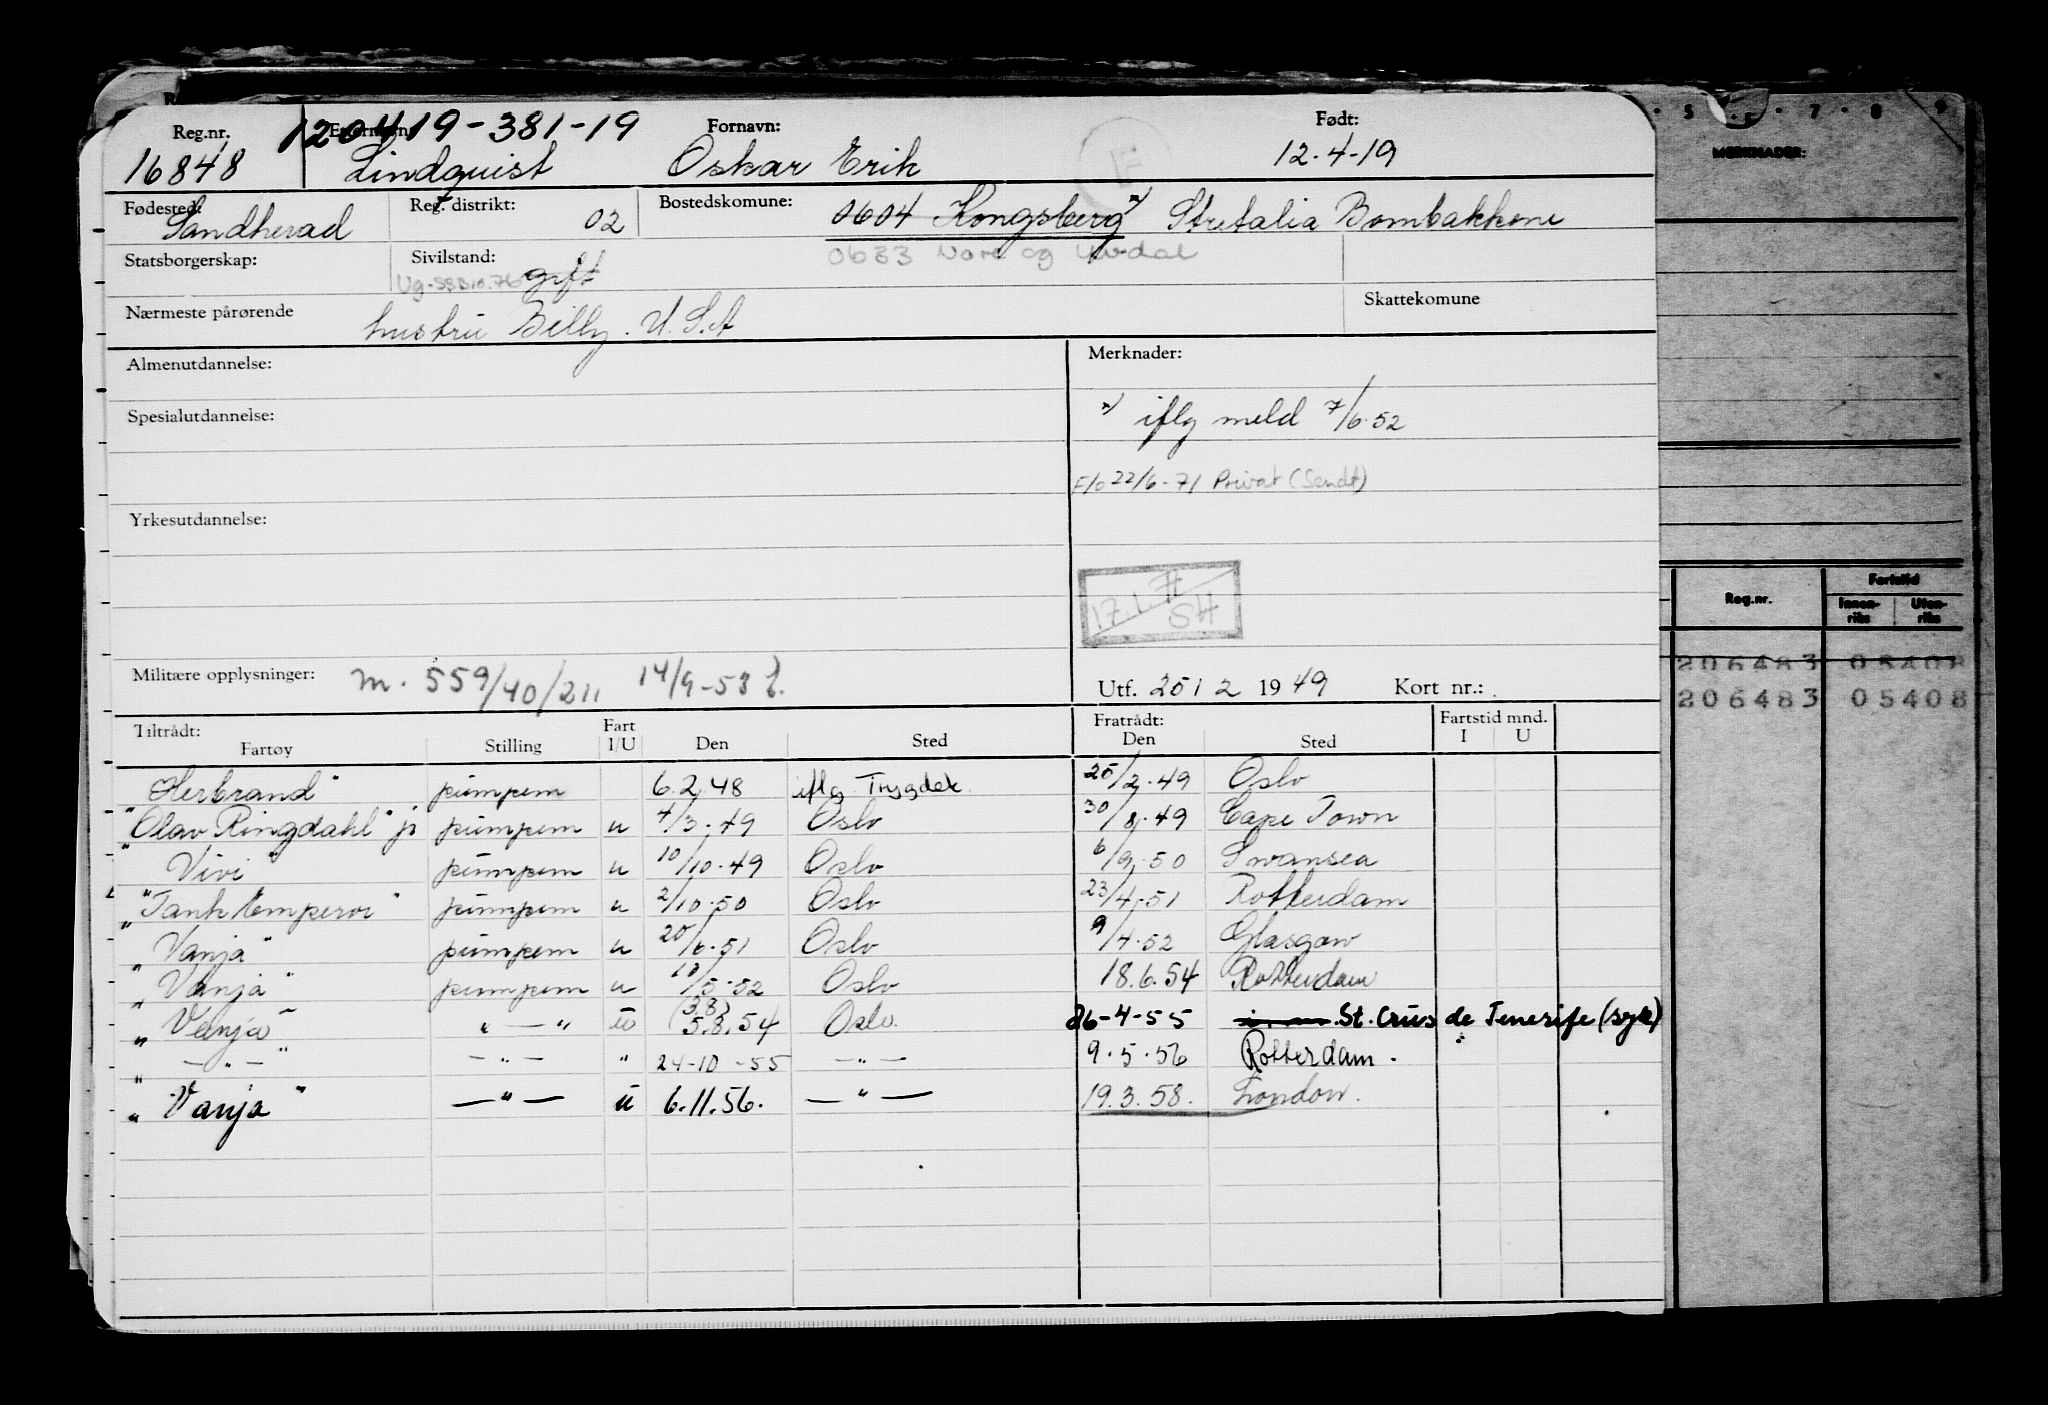 Reg.nr. 120419-381-19 Fornavn: Født:
16848 Lindquist Oskar Erik 12.4-19
Fødested: Reg. distrikt: Bostedskomune:
Sandherad 02 0604 Kongsberg x) Stretalia Bombakkene
Statsborgerskap: Sivilstand: gift 0633 Nore og Uvdal
Nærmeste pårørende hustru Billy. U.S.A Skattekomune
Almenutdannelse: Merknader:
Spesialutdannelse: x) iflg meld 7/6.52
22/6-71 Privat (Sendt)
Yrkesutdannelse:
17.1.71 SH
Militære opplysninger: m. 559/40/211 14/9-53 Utf. 25/2 1949 Kort nr.:
Tiltrådt: Fart Fratrådt: Fartstid mnd.
Fartøy Stilling I/U Den Sted Den Sted I U
Herbrand" pumpem 6.2.48 iflg Trygdek. 25/2.49 Oslo
"Olav Ringdahl" jr pumpem u 4/3.49 Oslo 30/8.49 Cape Town
"Vivi" pumpem u 10/10.49 Oslo 6/9.50 Swansea
"Tank Emperor" pumpem u 2/10.50 Oslo 23/4.51 Rotterdam
"Vanja" pumpem u 20/6.51 Oslo 9/4.52 Glasgow
"Vanja" pumpem u 10/5.52 Oslo 18.6.54 Rotterdam
(3.8)
"Vanja" " — " u 5.8.54 Oslo. 26-4-55 St. Crus de Tenerife (syk)
" — " — " — " — " 24-10-55 — " — 9.5.56 Rotterdam.
"Vanja" — " — u 6.11.56. — " — 19.3.58. London.
5 7 8 9
MERKNADER:
Reg.nr. Fartstid
Innenriks Utenriks
206483 05408
206483 05408